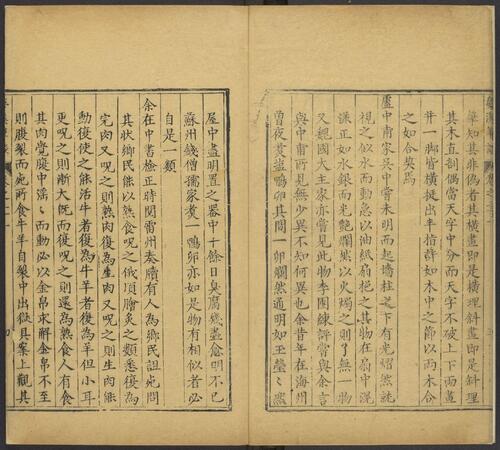 筆知其非偽者其橫畫即是橫理斜畫即是斜理
其木直剖偶當天字中分而天字不破上下兩畫
并一脚皆橫挺出半指許如木中之節以兩木合
之如合契焉
盧中甫家吳中嘗未明而起墻柱之下有光熠然就
視之似水而動急以油紙扇挹之其物在扇中滉
漾正如水銀而光艷爛然以火燭之則了無一物
又魏國大主家亦嘗見此物李團練評嘗與余言
與中甫所見無少異不知何異也余昔年在海州
曾夜煑鹽鴨卵其間一卵爛然通明如玉瑩〻然
屋中盡明置之器中十餘日臭腐幾盡愈明不已
蘇州錢僧孺家煑一鴨卵亦如是物有相似者必
自是一類
余在中書檢正時閱雷州奏牘有人為鄉民詛死問
其狀鄉民能以熟食呪之俄頃膾炙之類悉復為
完肉又呪之則熟肉復為生肉又呪之則生肉能
動復使之能活牛者復為牛羊者復為羊但小耳
更呪之則漸大既而復呪之則還為熟食人有食
其肉覺腹中淫〻而動必以金帛求解金帛不至
則腹裂而死所食牛羊自裂中出獄具案上觀其